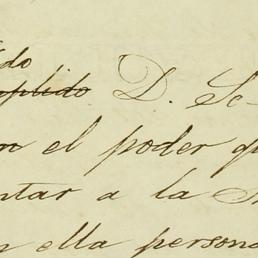 do
plido D. Se
n el poder qu
ntar a la
n ella person